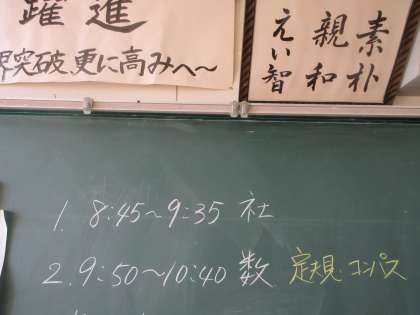 躍進
界突破、更に高みへ〜
素朴
親和
えい智
1. 8:45〜9:35 社
2. 9:50〜10:40 数 定規・コンパス